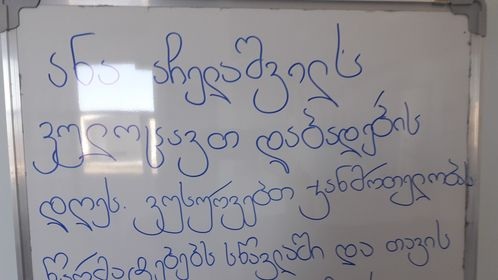 ანა არელაშვილს
ვულოცავთ დაბადების
დღეს. ვუსურვებთ ჯანმრთელობას
წარმატებებს სწავლაში და თავის